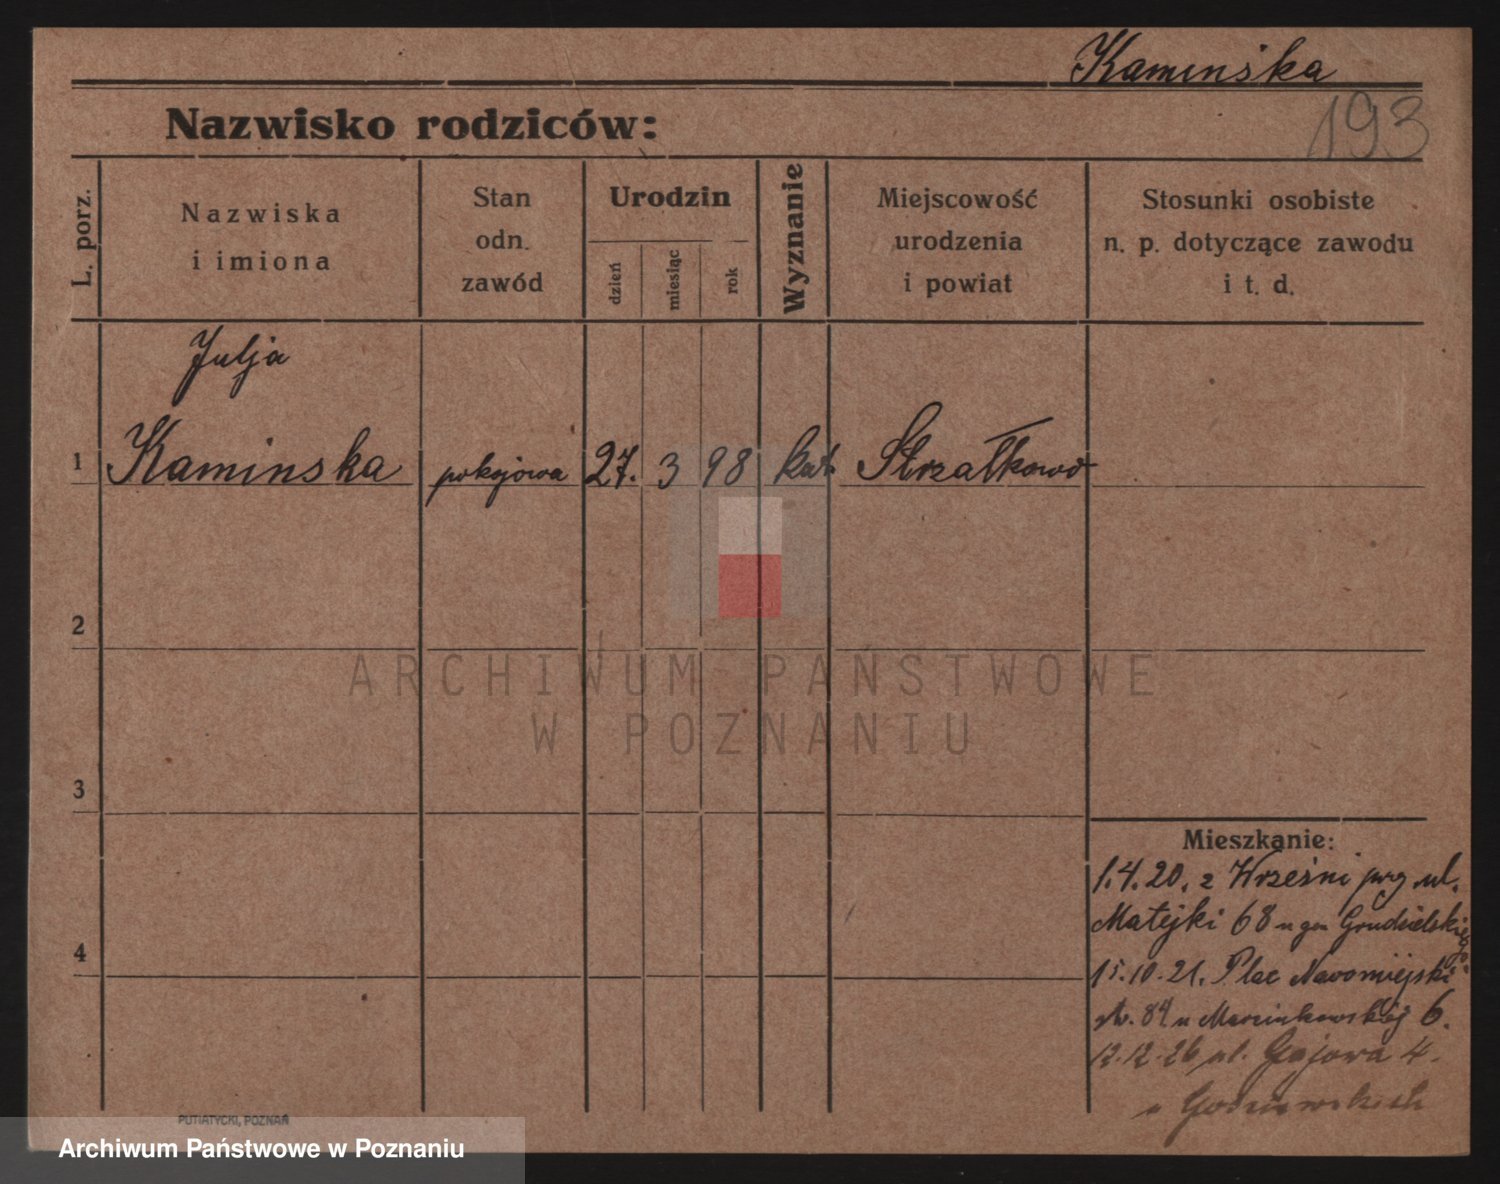 Kamińska
193
Nazwisko rodziców:
L. porz.
Nazwiska
i imiona
Stan
odn.
zawód
Urodzin
dzień
miesiąc
rok
Wyznanie
Miejscowość
urodzenia
i powiat
Stosunki osobiste
n. p. dotyczące zawodu
i t. d.
Julja
1 Kaminska pokojowa 27. 3 98 kat. Strzałkowo
2
ARCHIWUM PAŃSTWOWE
W POZNANIU
3
Mieszkanie:
1.4.20. z Wrześni prg ul.
Matejki 68 u gen Grudzielskiego
4
15.10.21. Plac Nowomiejski
u Marcinkowskiej 6.
12.12.26 ul. Gajowa 4.
u
PUTIATYCKI, POZNAŃ
Archiwum Państwowe w Poznaniu